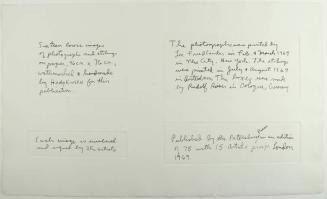 Sixteen loose images
of photographs and etchings
on paper, 76cm x 76cm,
watermarked & handmade
by Hodgkinson for this
publication
Each image is numbered
and signed by the artists
The photographs were printed by
Lee Friedlander in Feb & March 1969
in New City, New York. The etchings
were printed in July & August 1969
in London. The boxes were made
by Rudolf Rieser in Cologne, Germany
Published by the Petersburg Press in an edition
of 75 with 15 artists' proofs London
1969.